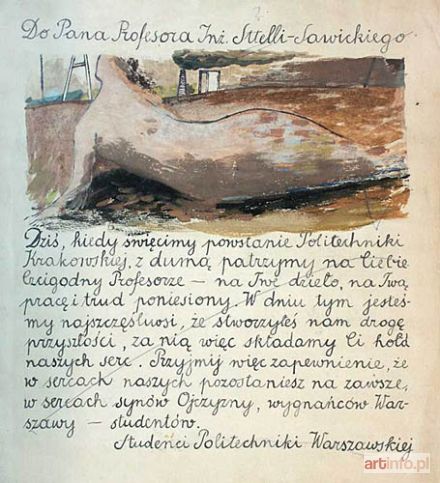 Do Pana Profesora Inż. Sttelli-Sawickiego.
Dziś, kiedy święcimy powstanie Politechniki
Krakowskiej, z dumą patrzymy na Ciebie
Czcigodny Profesorze – na Twe dzieło, na Twą
pracę i trud poniesiony. W dniu tym jesteś-
my najszczęśliwsi, że stworzyłeś nam drogę
przyszłości, za nią więc składamy Ci hołd
naszych serc. Przyjmij więc zapewnienie, że
w sercach naszych pozostaniesz na zawsze,
w sercach synów Ojczyzny, wygnańców War-
szawy – studentów.
Studenci Politechniki Warszawskiej
artinfo.pl